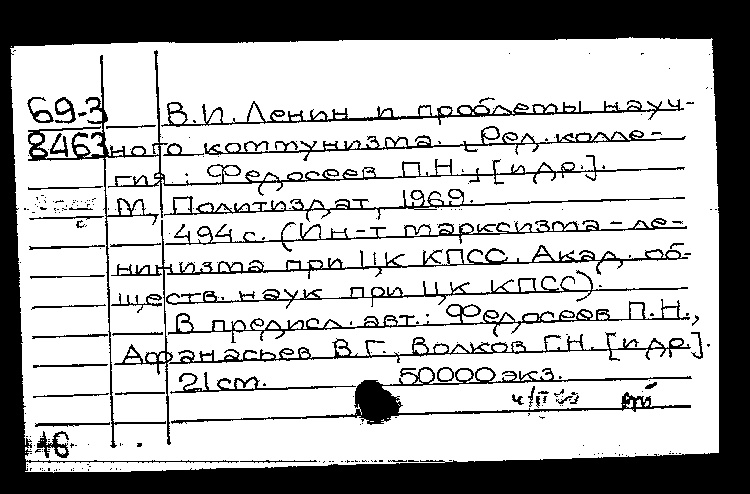 69-3 В.И. Ленин и проблемы науч-
8463 ного коммунизма. [Ред. колле-
гия: Федосеев П.Н., [и др.].
М, Политиздат, 1969.
494 с. (Ин-т марксизма-ле-
нинизма при ЦК КПСС. Акад. об-
ществ. наук при ЦК КПСС).
В предисл. авт.: Федосеев П.Н.,
Афанасьев В.Г., Волков Г.Н. [и др.].
21 см. 50000 экз.
16